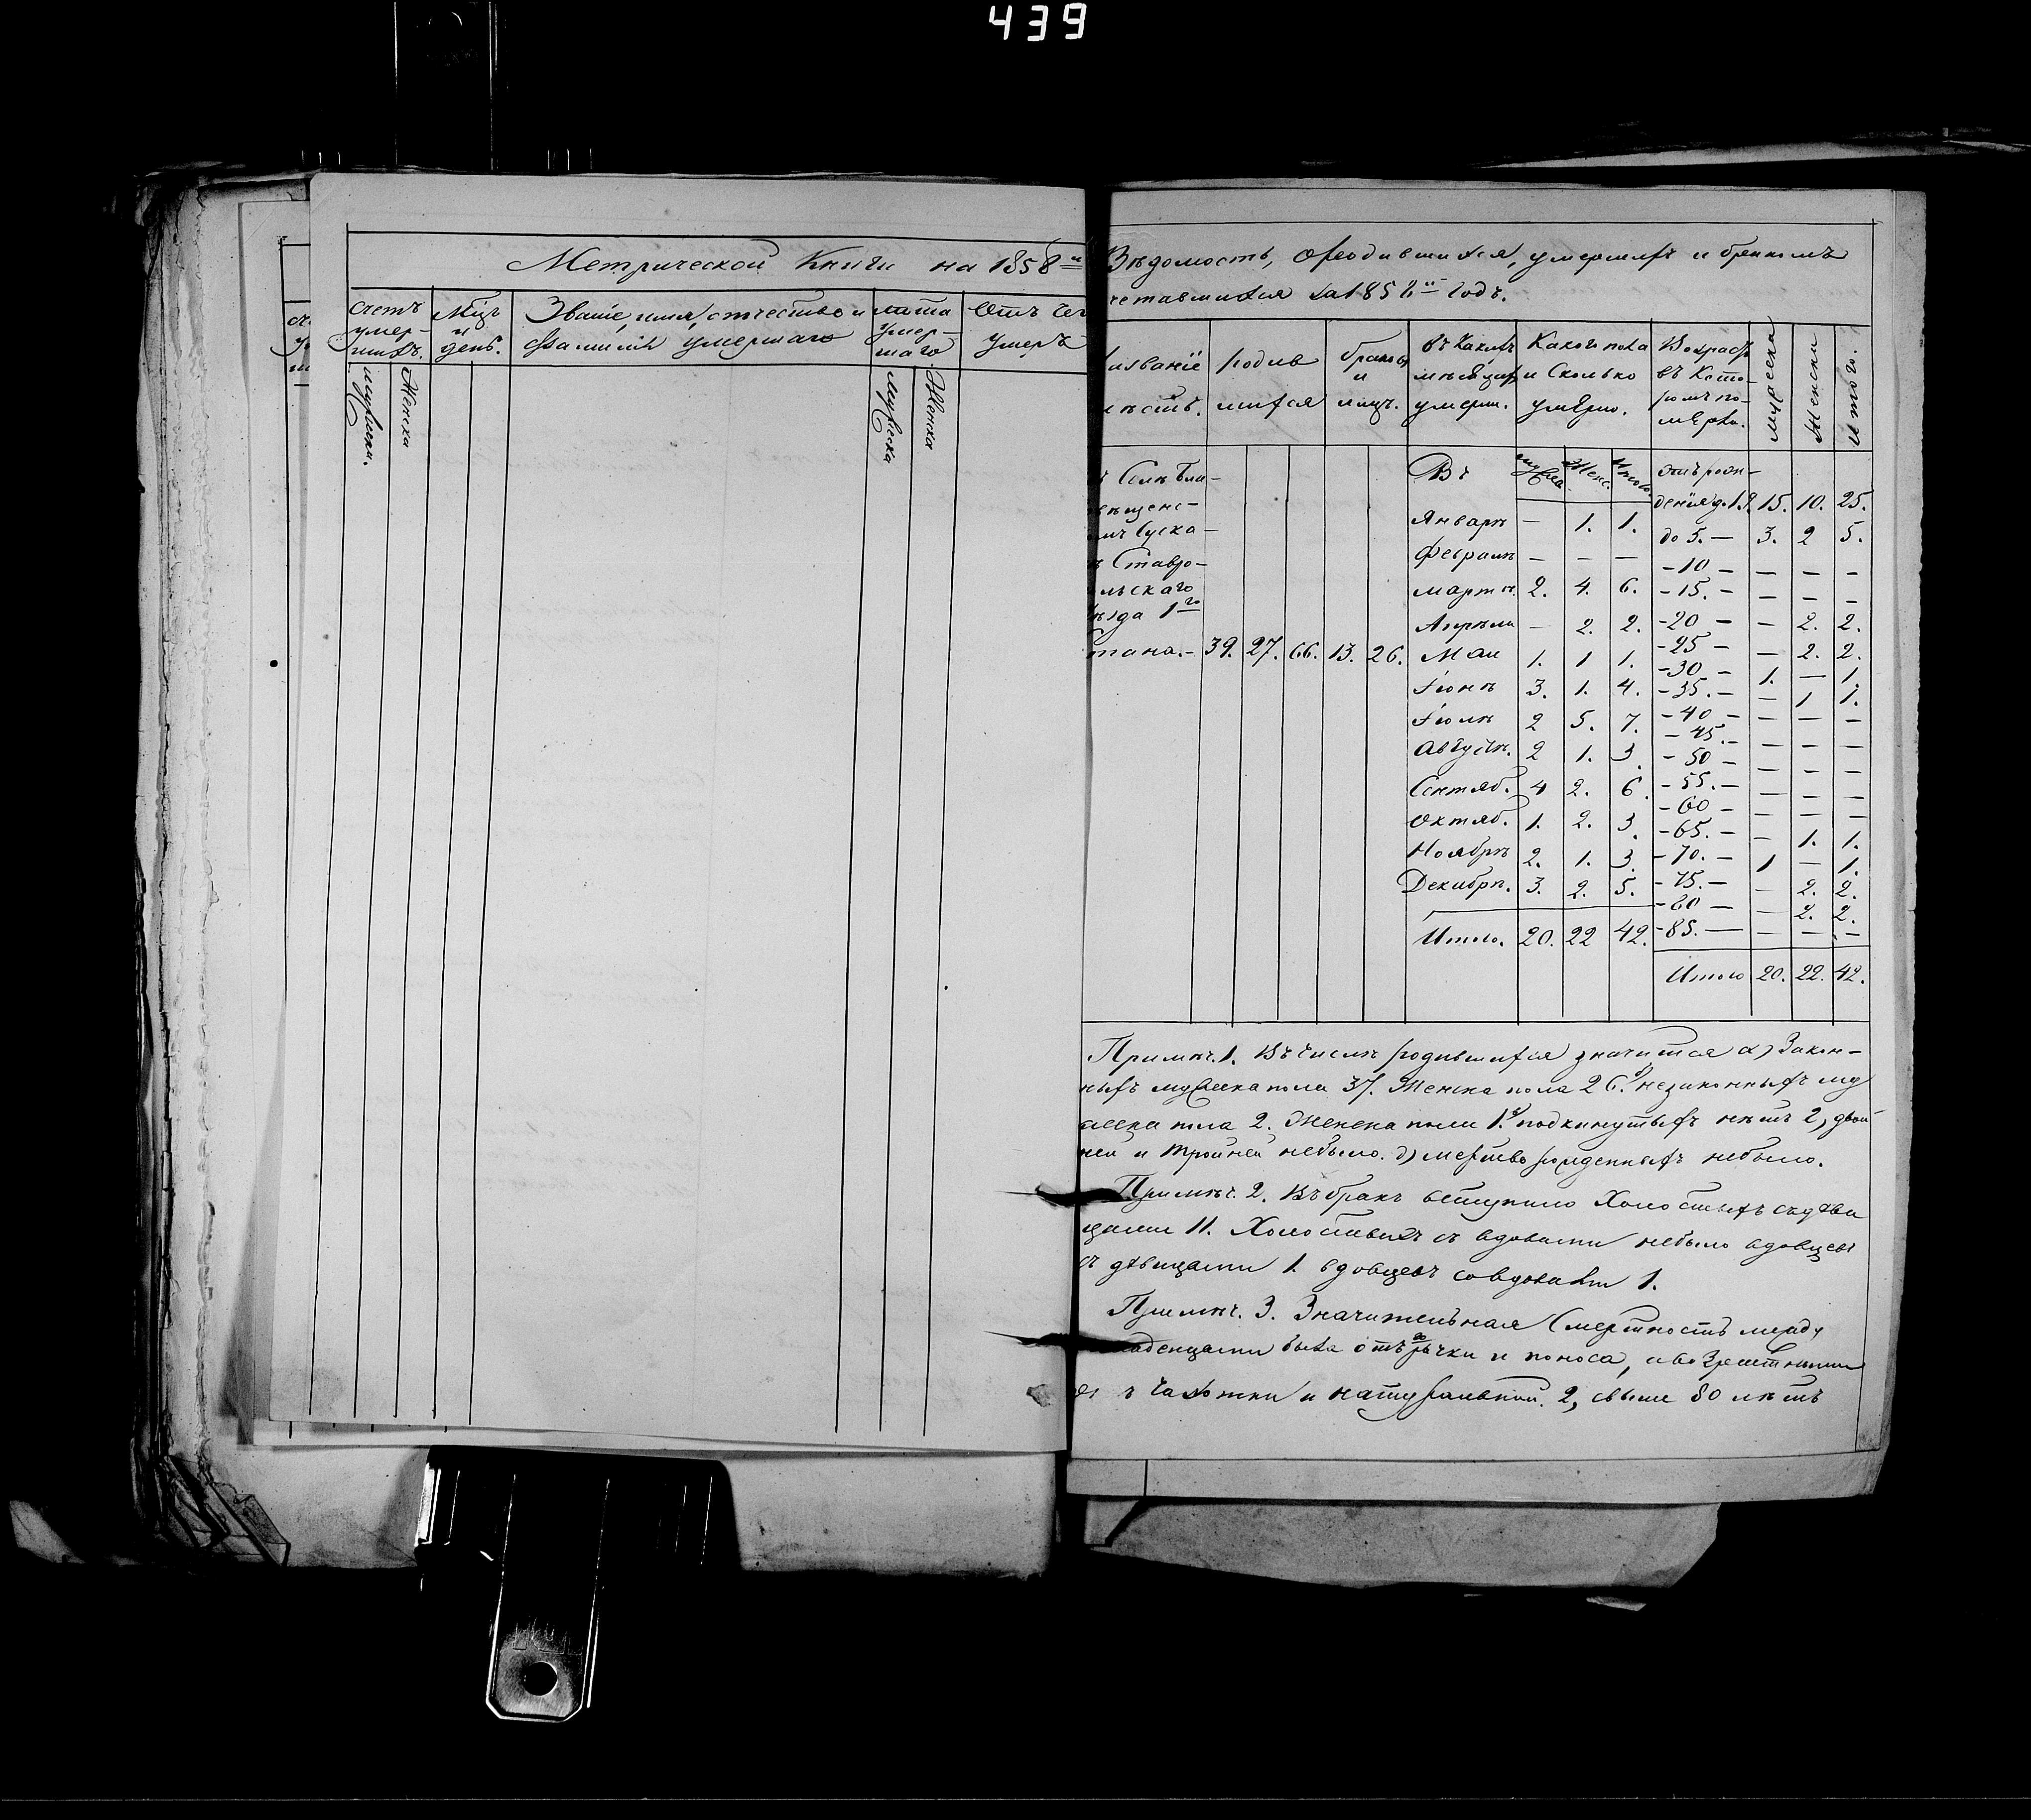 439
Метрической Книги на 1858й
Счетъ умер- шихъ. Мцъ и день. Званіе, имя, отчество и фамилія умершаго Лѣта умер- шаго Отъ чег умеръ
мужеск. Женска Мужеска Женска
Вѣдомость, о родившихся, умершихъ и бракомъ
четавшихся за 1858й годъ.
азваніе родив браковъ въ какихъ Какого пола Возрастъ мужеска Женска Итого.
и мѣсяцахъ и сколько въ кото-
ѣстъ. шихся лицъ. умерли. умерло. ромъ по-
мерли.
ъ Селѣ Бла- Въ мужеска. Женс. Итого. отъ рож-
вѣщенс- денія до 1 г. 15. 10. 25.
омъ Суска- Январѣ — 1. 1. до 5. — 3. 2 5.
Февралѣ — — — -10 — — — —
ъ Ставро- мартѣ. 2. 4. 6. -15. — — — —
ольскаго
ѣзда 1го Апрѣли — 2. 2. -20 — — 2. 2.
тана. — 39. 27. 66. 13. 26. Маи 1. 1 1. -25 — — 2. 2.
-30 — 1. — 1.
Іюнѣ 3. 1. 4. -35. — — 1 1.
Іюлѣ 2 5. 7. -40 — — — —
-45. — — — —
Августѣ. 2 1. 3. -50 — — — —
Сентяб. 4 2. 6. -55. — — — —
-60 — — — —
Октяб. 1. 2. 3. -65. — — 1. 1.
Ноябрѣ 2. 1. 3. -70. — 1 — 1.
Декабрѣ. 3. 2. 5. -75. — — 2. 2.
-80 — — 2. 2.
Итого. 20. 22 42. -85. — — — —
Итого 20. 22. 42.
Примѣч. 1. Въ числѣ родившихся значится а) Закон-
ныхъ мужеска пола 37. Женска пола 26. незаконныхъ му
жеска пола 2. Женска пола 1. подкинутыхъ нѣтъ 2, двой
ней и тройней небыло. д) мертво рожденныхъ небыло.
Примѣч. 2. Въ бракъ вступило Холостыхъ съ дѣви
цами 11. Холостыхъ съ вдовами небыло вдовцевъ
съ дѣвицами 1. вдовцевъ со вдовами 1.
Примѣч. 3. Значительная смертность между
аденцами была отъ и поноса, а возрастными
ъ чахотки и натуральной. 2, свыше 80 лѣтъ